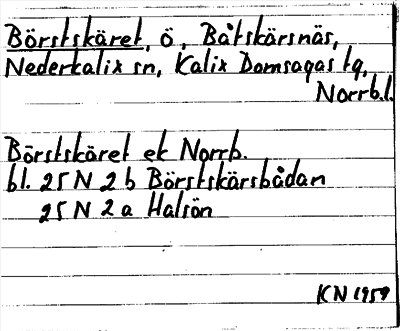 Börstskäret, ö, Båtskärsnäs,
Nederkalix sn, Kalix Domsagas tg,
Norrb.l.
Börstskäret ek Norrb.
bl. 25 N 2 b Börstskärsbådan
25 N 2 a Halsön
KN 1959